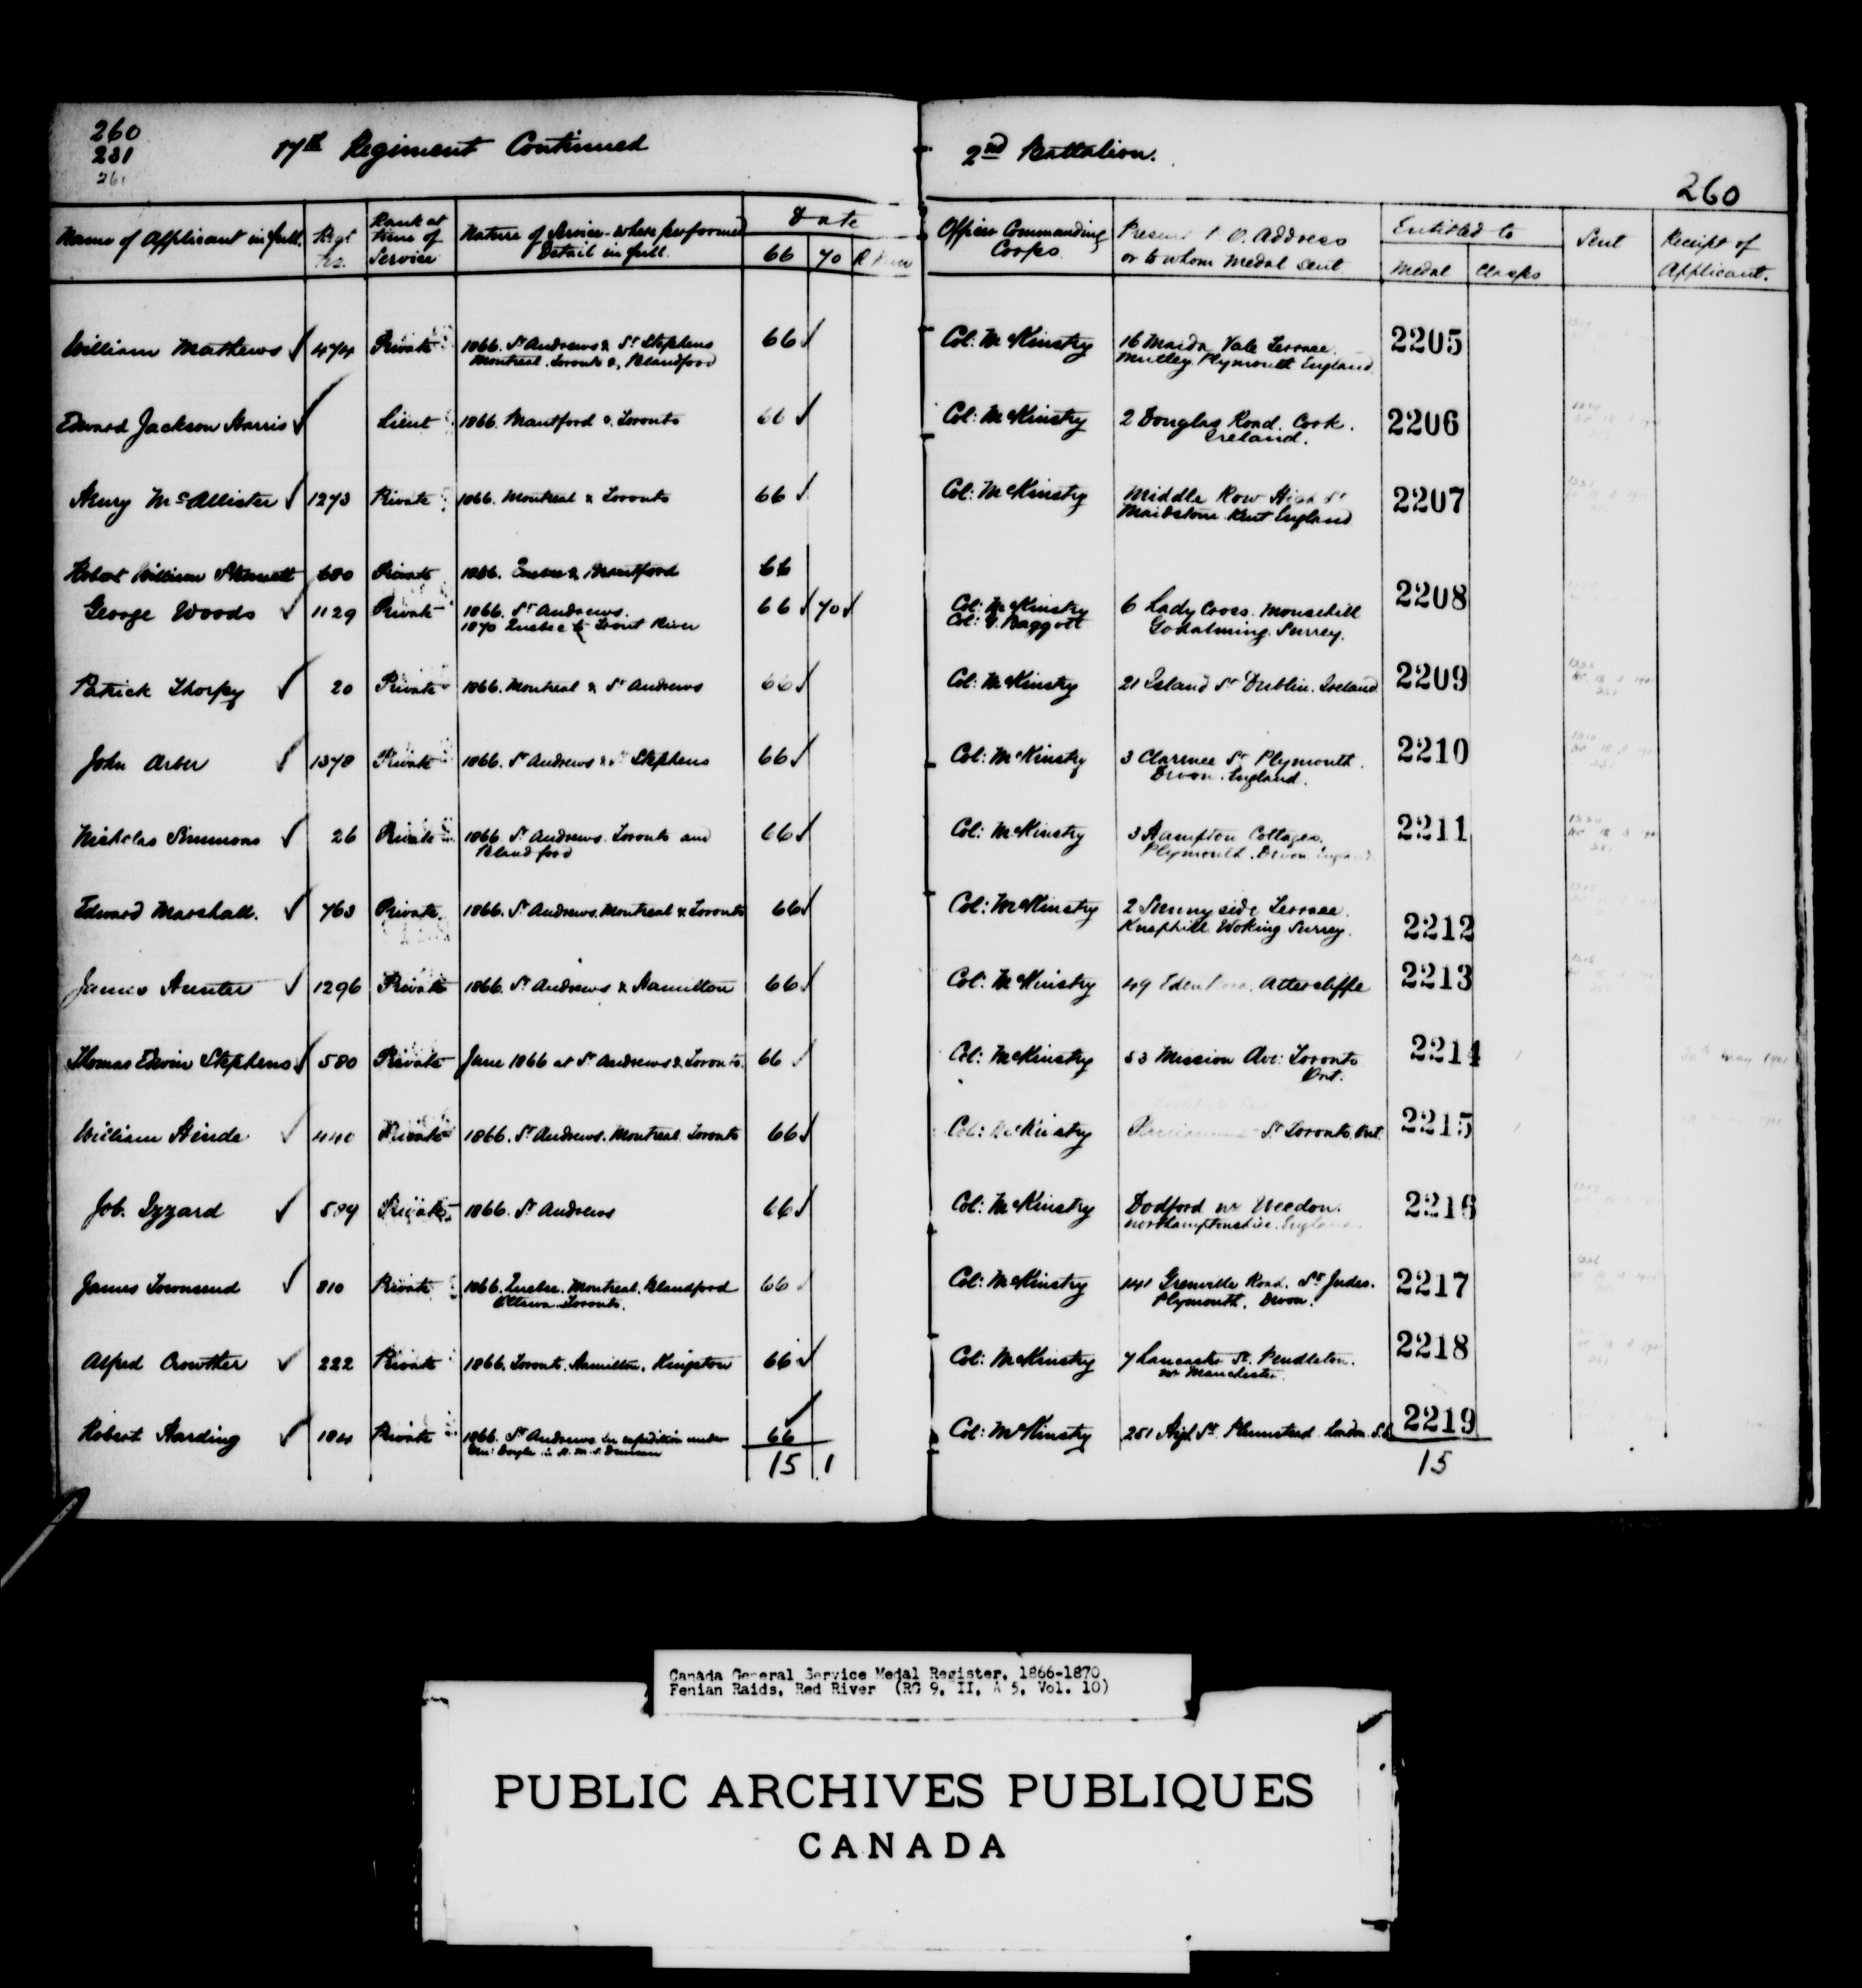 260
231
261
17th Regiment Continued
2nd Battalion.
260
Name of Applicant in full. Regt No. Rank at time of Service Nature of Service - where performed Detail in full. Date 66 70 R River Officer Commanding Corps. Present P.O. Address or to whom Medal sent Entitled to Medal Clasps Sent Receipt of Applicant.
William Mathews ✓ 474 Private 1866. St Andrews & St Stephens 66 ✓ Col: McKinstry 16 Maida Vale Terrace 2205
Montreal. Toronto &, Blandford Mutley Plymouth England
Edward Jackson Harris ✓ Lieut 1866. Brantford & Toronto 66 ✓ Col: McKinstry 2 Douglas Road. Cork. 2206
Ireland.
Henry McAllister ✓ 1273 Private 1866. Montreal & Toronto 66 ✓ Col: McKinstry Middle Row High St 2207
Maidstone Kent England
Robert William 680 Private 1866. Quebec & Brantford 66
George Woods ✓ 1129 Private 1866. St Andrews. 66 ✓ 70 ✓ Col: McKinstry 6 Lady Cross. Mousehill 2208
1870 Quebec to Trout River Col: Baggott Godalming. Surrey.
Patrick Thorpy ✓ 20 Private 1866. Montreal & St Andrews 66 ✓ Col: McKinstry 21 Island St Dublin. Ireland 2209
John Arber ✓ 1378 Private 1866. St Andrews & St Stephens 66 ✓ Col: McKinstry 3 Clarence St Plymouth. 2210
Devon. England.
Nicholas Simmons ✓ 26 Private 1866. St Andrews. Toronto and 66 ✓ Col: McKinstry 3 Hampton Cottages. 2211
Blandford Plymouth. Devon England
Edward Marshall. ✓ 763 Private. 1866. St Andrews. Montreal & Toronto 66 ✓ Col: McKinstry 2 Sunny side Terrace. 2212
Knaphill Woking Surrey.
James Hunter ✓ 1296 Private 1866. St Andrews & Hamilton 66 ✓ Col: McKinstry 49 Eden Road. Attercliffe 2213
Thomas Edwin Stephens ✓ 580 Private June 1866 at St Andrews & Toronto. 66 ✓ Col: McKinstry 53 Mission Ave: Toronto 2214 1 30th May 1901
Ont.
William Hinde ✓ 440 Private 1866. St Andrews. Montreal Toronto 66 ✓ Col: McKinstry St Toronto. Ont. 2215 1
Job. Izzard ✓ 599 Private 1866. St Andrews 66 ✓ Col: McKinstry Dodford nr Weedon. 2216
Northamptonshire. England.
James Townsend ✓ 810 Private 1866. Quebec. Montreal. Blandford 66 ✓ Col: McKinstry 141 Grenville Road. St Judes. 2217
Ottawa Toronto. Plymouth. Devon.
Alfred Crowther ✓ 222 Private 1866. Toronto. Hamilton. Kingston 66 ✓ Col: McKinstry 7 Lancaster St. Pendleton. 2218
nr Manchester.
Robert Harding ✓ 184 Private 1866. St Andrews in expedition under 66 ✓ Col: McKinstry 251 High St. Plumstead. London. S.E. 2219
Genl Doyle in H.M.S. Duncan
15 1 15
Canada General Service Medal Register, 1866-1870,
Fenian Raids, Red River (RG 9, II, A 5, Vol. 10)
PUBLIC ARCHIVES PUBLIQUES
CANADA